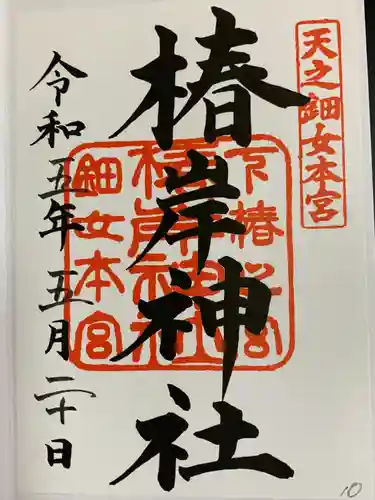 天之鈿女本宮
椿岸神社
下椿㆑宮
椿岸神社
鈿女本宮
令和五年五月二十日
10